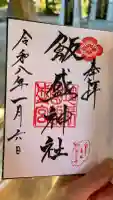 奉拝
飯盛神社
令和八年一月六日